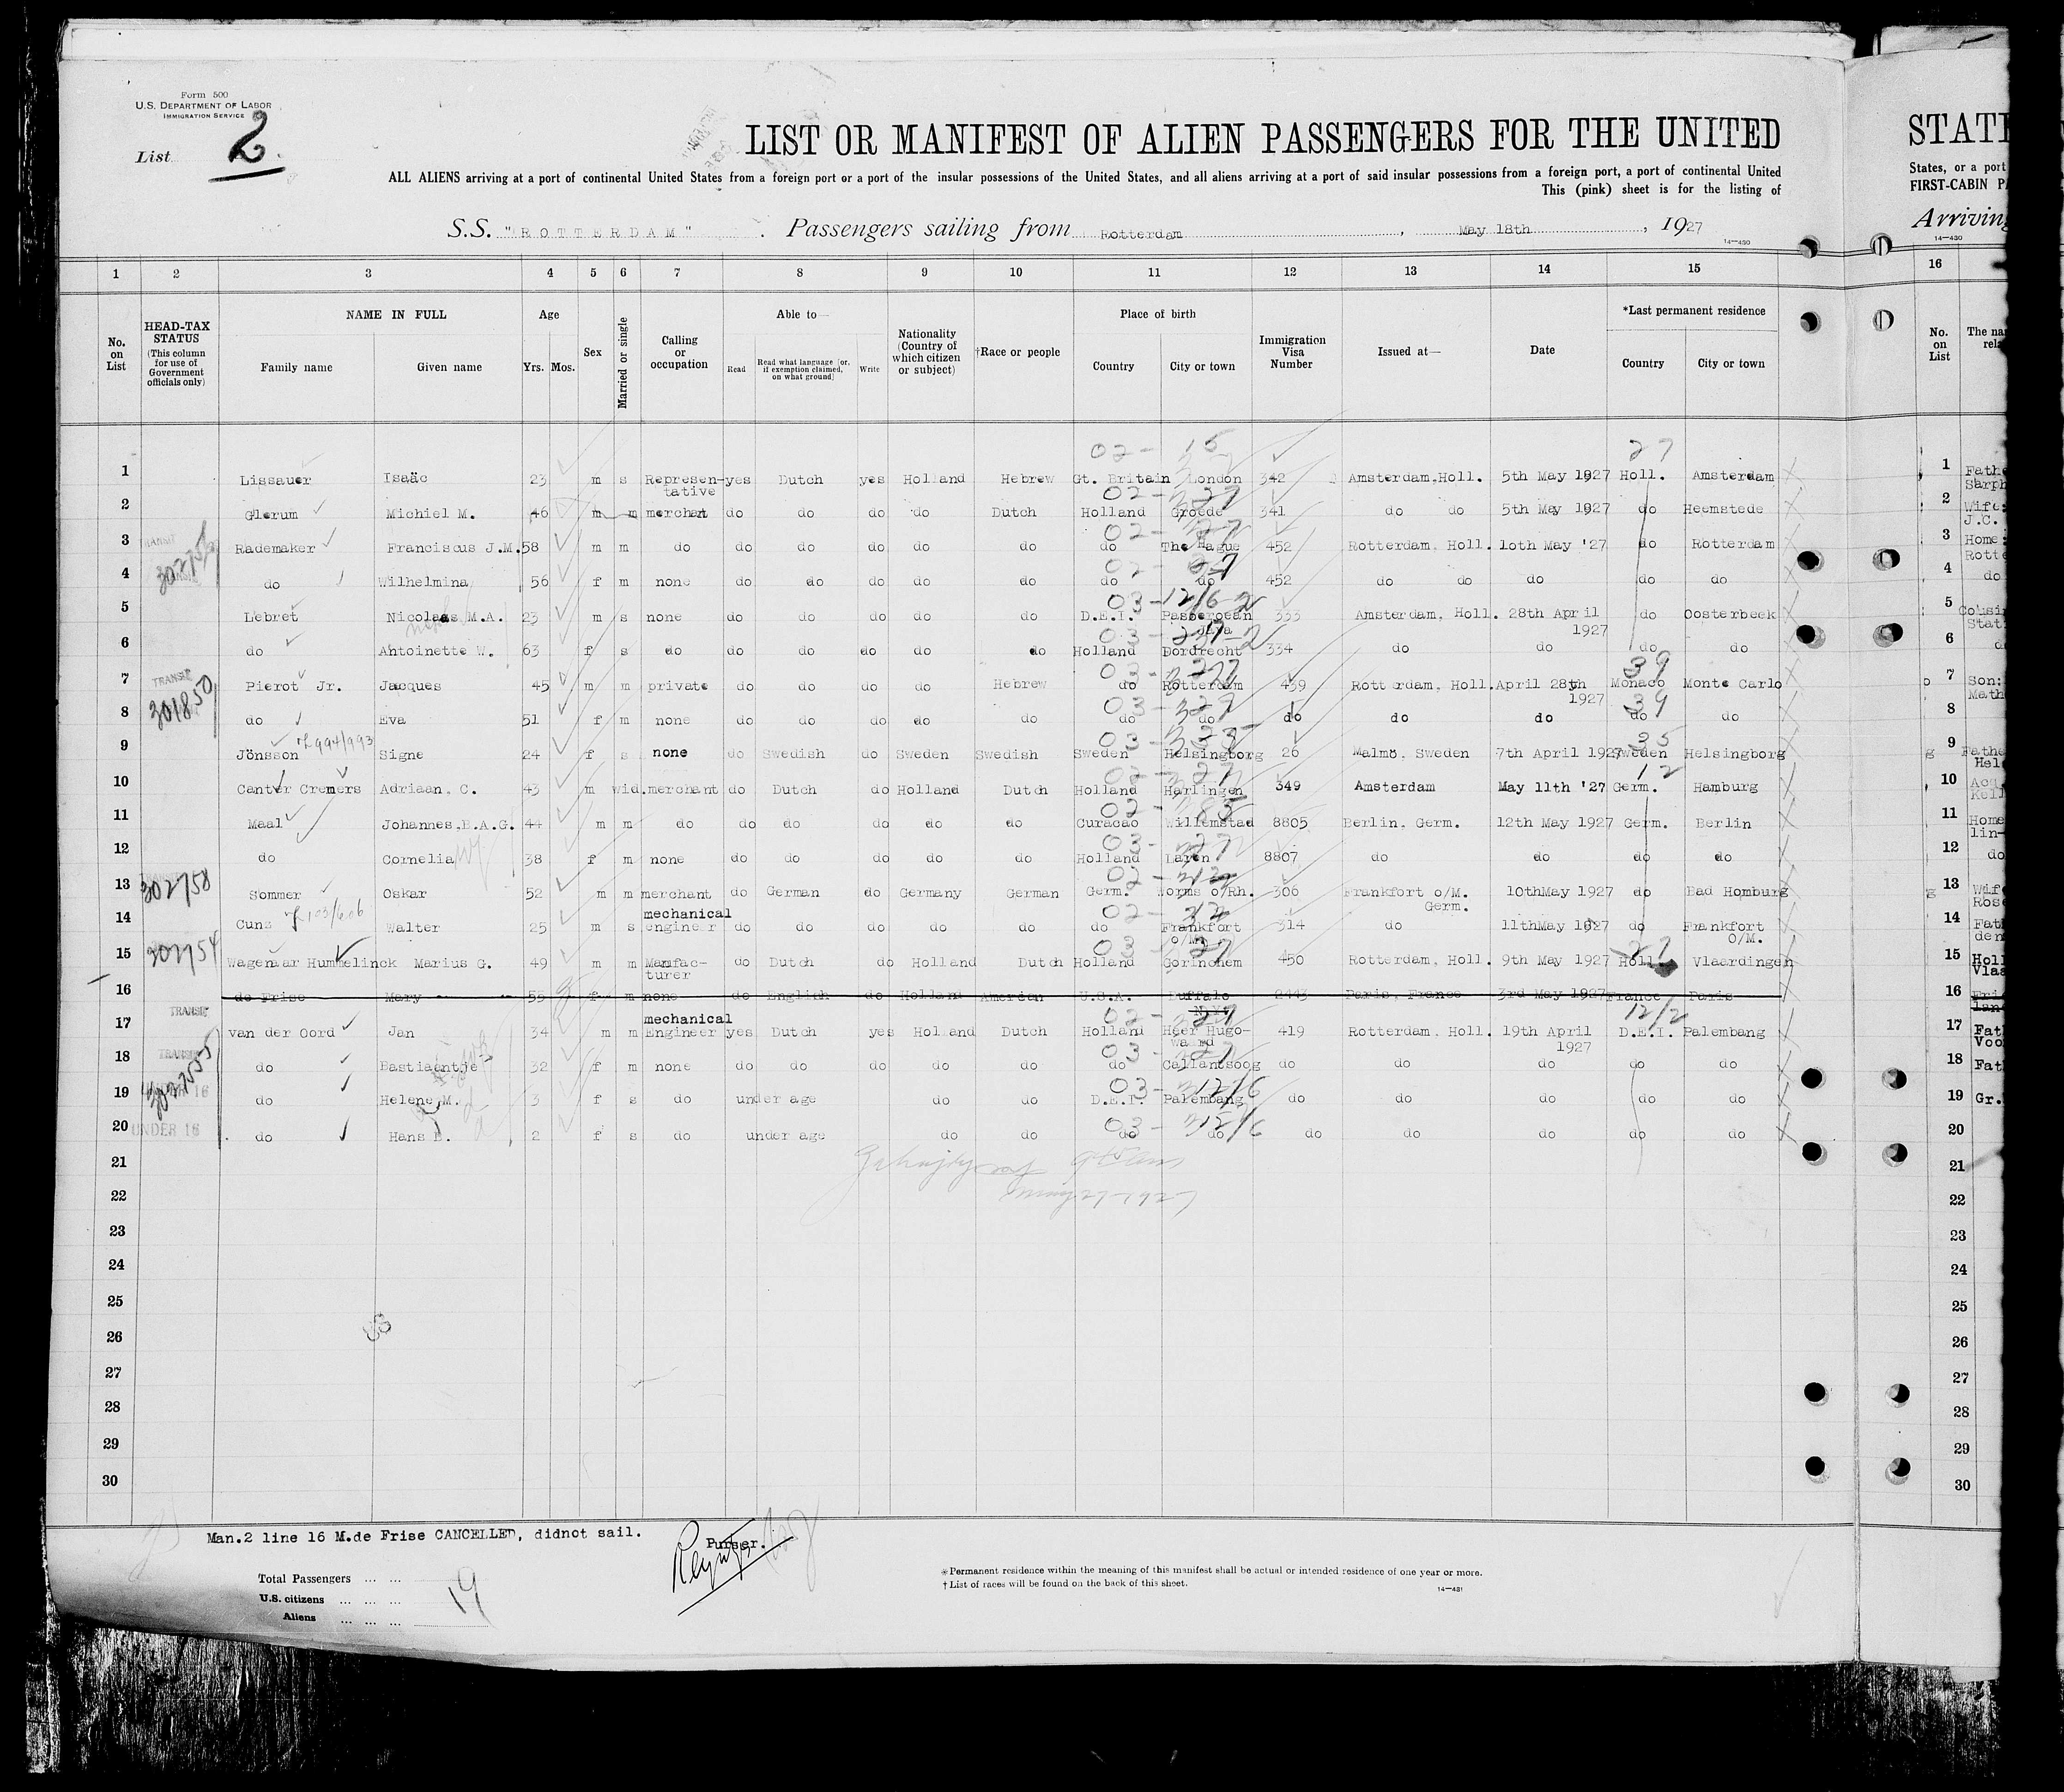 Form 500
U.S. DEPARTMENT OF LABOR
IMMIGRATION SERVICE
List 2
LIST OR MANIFEST OF ALIEN PASSENGERS FOR THE UNITED
STAT
ALL ALIENS arriving at a port of continental United States from a foreign port or a port of the insular possessions of the United States, and all aliens arriving at a port of said insular possessions from a foreign port, a port of continental United
States, or a port
This (pink) sheet is for the listing of
FIRST-CABIN
S.S. "ROTTERDAM". Passengers sailing from Rotterdam, May 18th, 1927
Arriving
14—430
14—430
1 2 3 4 5 6 7 8 9 10 11 12 13 14 15 16
No. on List
HEAD-TAX STATUS (This column for use of Government officials only)
NAME IN FULL
Family name Given name
Age Yrs. Mos.
Sex
Married or single
Calling or occupation
Able to—
Read Read what language [or, if exemption claimed, on what ground] Write
Nationality (Country of which citizen or subject)
†Race or people
Place of birth
Country City or town
Immigration Visa Number
Issued at—
Date
*Last permanent residence
Country City or town
No. on List
02- 15 27
1 Lissauer Isaäc 23 m s Represen-tative yes Dutch yes Holland Hebrew Gt. Britain London 342 Amsterdam,Holl. 5th May 1927 Holl. Amsterdam 1
2 Glerum Michiel M. 46 m m merchant do do do do Dutch Holland Groede 341 do do 5th May 1927 do Heemstede 2
3 TRANSIT Rademaker Franciscus J.M. 58 m m do do do do do do do The Hague 452 Rotterdam, Holl. 10th May '27 do Rotterdam 3 Home
4 do Wilhelmina 56 f m none do do do do do do do 452 do do do do do 4 do
5 Lebret Nicolaas M.A. 23 m s none do do do do do D.E.I. Pasoeroean Java 333 Amsterdam, Holl. 28th April 1927 do Oosterbeek 5
6 do Antoinette W. 63 f s do do do do do do Holland Dordrecht 334 do do do do 6
7 TRANSIT 301850 Pierot Jr. Jacques 45 m m private do do do do Hebrew do Rotterdam 439 Rotterdam, Holl. April 28th 1927 Monaco Monte Carlo 7 Son:
39
8 do Eva 51 f m none do do do do do do do do do do do do 8
39
9 Jönsson Signe 24 f s none do Swedish do Sweden Swedish Sweden Helsingborg 26 Malmö, Sweden 7th April 1927 Sweden Helsingborg 9
10 Canter Cremers Adriaan, C. 43 m wid. merchant do Dutch do Holland Dutch Holland Harlingen 349 Amsterdam May 11th '27 Germ. Hamburg 10
11 Maal Johannes,B.A.G. 44 m m do do do do do do Curacao Willemstad 8805 Berlin, Germ. 12th May 1927 Germ. Berlin 11 Home
12 do Cornelia 38 f m none do do do do do Holland Laren 8807 do do do do 12 do
13 302758 Sommer Oskar 52 m m merchant do German do Germany German Germ. Worms o/Rh. 306 Frankfort o/M. Germ. 10thMay 1927 do Bad Homburg 13
14 Cunz Walter 25 m s mechanical engineer do do do do do do Frankfort o/M. 314 do 11thMay 1927 do Frankfort o/M. 14
15 Wagenaar Hummelinck Marius G. 49 m m Manfac-turer do Dutch do Holland Dutch Holland Gorinchem 450 Rotterdam, Holl. 9th May 1927 Holl. Vlaardingen 15
16 de Frise Mary 55 f m none do English do Holland U.S.A. Buffalo N.Y. 2443 Paris, France 3rd May 1927 France Paris 16
17 TRANSIT van der Oord Jan 34 m m mechanical Engineer yes Dutch yes Holland Dutch Holland Heer Hugo-waard 419 Rotterdam, Holl. 19th April 1927 D.E.I. Palembang 17
18 TRANSIT do Bastiaantje 32 f m none do do do do do do Callantsoog do do do do do 18
19 UNDER 16 do Helene,M. 3 f s do under age do do D.E.I. Palembang do do do do do 19
20 UNDER 16 do Hans E. 2 f s do under age do do do do do do do do do 20
21 21
May 27-1927
22 22
23 23
24 24
25 25
26 26
27 27
28 28
29 29
30 30
Man.2 line 16 M.de Frise CANCELLED, didnot sail.
Purser.
Total Passengers ... ...
U.S. citizens ... ... ...
Aliens ... ... ...
19
*Permanent residence within the meaning of this manifest shall be actual or intended residence of one year or more.
†List of races will be found on the back of this sheet.
14—431